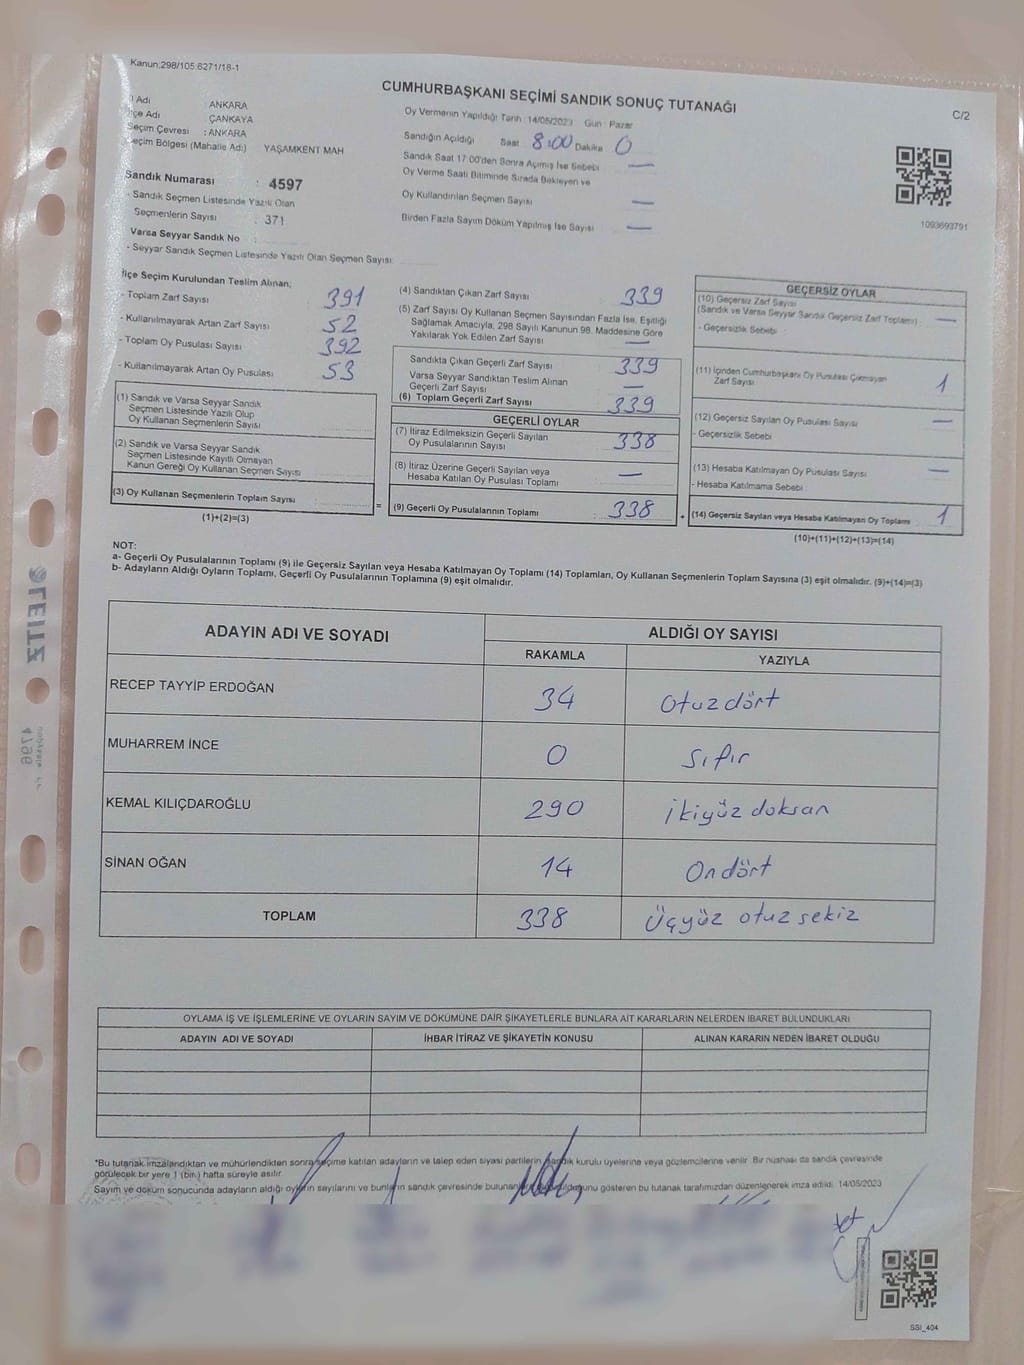 Kanun;298/105 6271/18-1
CUMHURBAŞKANI SEÇİMİ SANDIK SONUÇ TUTANAĞI
C/2
İl Adı : ANKARA
İlçe Adı : ÇANKAYA
Seçim Çevresi : ANKARA
Seçim Bölgesi (Mahalle Adı) YAŞAMKENT MAH
Sandık Numarası : 4597
- Sandık Seçmen Listesinde Yazılı Olan
Seçmenlerin Sayısı : 371
Varsa Seyyar Sandık No :
- Seyyar Sandık Seçmen Listesinde Yazılı Olan Seçmen Sayısı:
Oy Vermenin Yapıldığı Tarih : 14/05/2023 Gün : Pazar
Sandığın Açıldığı Saat 8:00 Dakika 0
Sandık Saat 17:00'den Sonra Açılmış İse Sebebi —
Oy Verme Saati Bitiminde Sırada Bekleyen ve
Oy Kullandırılan Seçmen Sayısı —
Birden Fazla Sayım Döküm Yapılmış İse Sayısı —
1093693791
İlçe Seçim Kurulundan Teslim Alınan;
- Toplam Zarf Sayısı : 391
- Kullanılmayarak Artan Zarf Sayısı : 52
- Toplam Oy Pusulası Sayısı : 392
- Kullanılmayarak Artan Oy Pusulası : 53
(1) Sandık ve Varsa Seyyar Sandık
Seçmen Listesinde Yazılı Olup
Oy Kullanan Seçmenlerin Sayısı
(2) Sandık ve Varsa Seyyar Sandık
Seçmen Listesinde Kayıtlı Olmayan
Kanun Gereği Oy Kullanan Seçmen Sayısı
(3) Oy Kullanan Seçmenlerin Toplam Sayısı :
(1)+(2)=(3)
=
(4) Sandıktan Çıkan Zarf Sayısı : 339
(5) Zarf Sayısı Oy Kullanan Seçmen Sayısından Fazla İse, Eşitliği
Sağlamak Amacıyla, 298 Sayılı Kanunun 98. Maddesine Göre
Yakılarak Yok Edilen Zarf Sayısı —
Sandıkta Çıkan Geçerli Zarf Sayısı 339
Varsa Seyyar Sandıktan Teslim Alınan
Geçerli Zarf Sayısı —
(6) Toplam Geçerli Zarf Sayısı 339
GEÇERLİ OYLAR
(7) İtiraz Edilmeksizin Geçerli Sayılan
Oy Pusulalarının Sayısı 338
(8) İtiraz Üzerine Geçerli Sayılan veya
Hesaba Katılan Oy Pusulası Toplamı —
(9) Geçerli Oy Pusulalarının Toplamı : 338
+
GEÇERSİZ OYLAR
(10) Geçersiz Zarf Sayısı
(Sandık ve Varsa Seyyar Sandık Geçersiz Zarf Toplamı) : —
- Geçersizlik Sebebi :
(11) İçinden Cumhurbaşkanı Oy Pusulası Çıkmayan
Zarf Sayısı 1
(12) Geçersiz Sayılan Oy Pusulası Sayısı —
- Geçersizlik Sebebi
(13) Hesaba Katılmayan Oy Pusulası Sayısı —
- Hesaba Katılmama Sebebi
(14) Geçersiz Sayılan veya Hesaba Katılmayan Oy Toplamı : 1
(10)+(11)+(12)+(13)=(14)
NOT:
a- Geçerli Oy Pusulalarının Toplamı (9) ile Geçersiz Sayılan veya Hesaba Katılmayan Oy Toplamı (14) Toplamları, Oy Kullanan Seçmenlerin Toplam Sayısına (3) eşit olmalıdır. (9)+(14)=(3)
b- Adayların Aldığı Oyların Toplamı, Geçerli Oy Pusulalarının Toplamına (9) eşit olmalıdır.
ADAYIN ADI VE SOYADI ALDIĞI OY SAYISI
RAKAMLA YAZIYLA
RECEP TAYYİP ERDOĞAN 34 otuzdört
MUHARREM İNCE 0 sıfır
KEMAL KILIÇDAROĞLU 290 ikiyüz doksan
SİNAN OĞAN 14 Ondört
TOPLAM 338 Üçyüz otuz sekiz
OYLAMA İŞ VE İŞLEMLERİNE VE OYLARIN SAYIM VE DÖKÜMÜNE DAİR ŞİKAYETLERLE BUNLARA AİT KARARLARIN NELERDEN İBARET BULUNDUKLARI
ADAYIN ADI VE SOYADI İHBAR İTİRAZ VE ŞİKAYETİN KONUSU ALINAN KARARIN NEDEN İBARET OLDUĞU
*Bu tutanak imzalandıktan ve mühürlendikten sonra seçime katılan adayların ve talep eden siyasi partilerin sandık kurulu üyelerine veya gözlemcilerine verilir. Bir nüshası da sandık çevresinde
görülecek bir yere 1 (bir) hafta süreyle asılır.
Sayım ve döküm sonucunda adayların aldığı oyların sayılarını ve bunların sandık çevresinde gösteren bu tutanak tarafımızdan düzenlenerek imza edildi. 14/05/2023
SSI_404
LEITZ
4796